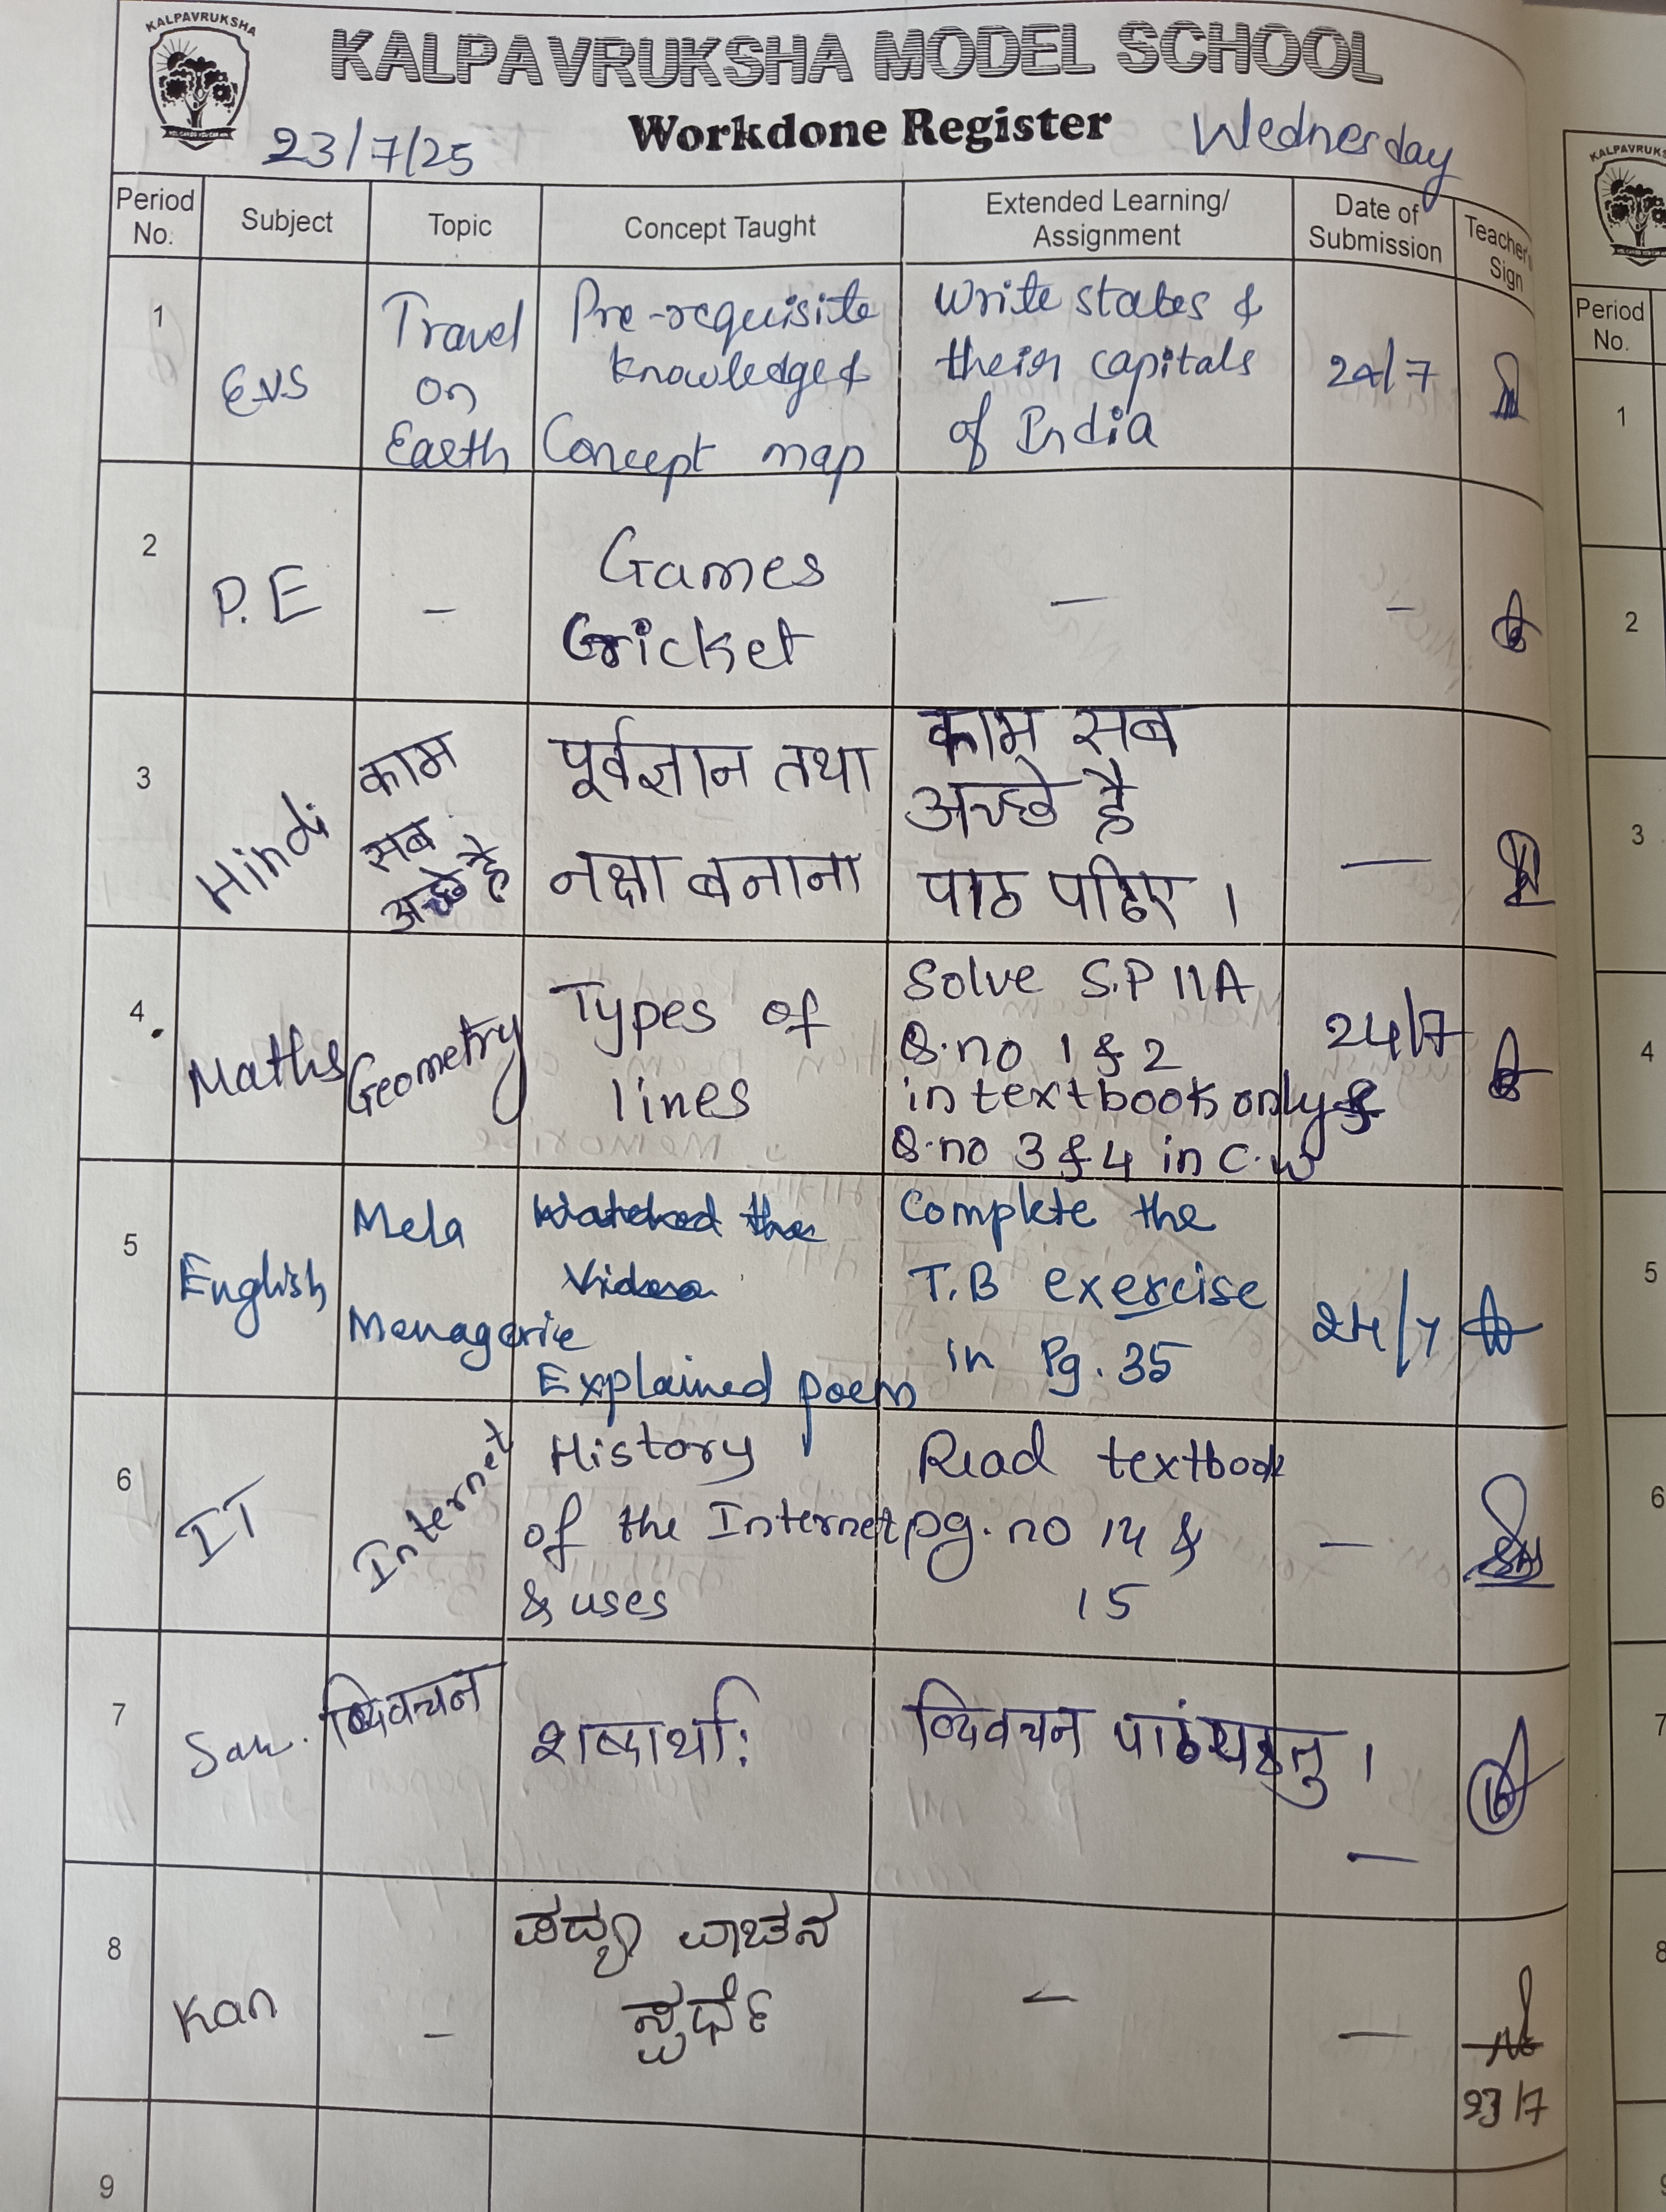 KALPAVRUKSHA
KALPAVRUKSHA MODEL SCHOOL
Workdone Register
23/7/25
Wednesday
Period No.
Subject
Topic
Concept Taught
Extended Learning/
Assignment
Date of
Submission
Teacher's
Sign
1
E.V.S
Travel
on
Earth
Pre-requisite
knowledge &
Concept map
Write states &
their capitals
of India
24/7
2
P.E
-
Games
Cricket
-
-
3
Hindi
काम
सब
अच्छे है
पूर्वज्ञान तथा
नक्षा बनाना
काम सब
अच्छे है
पाठ पढिए ।
-
4
Maths
Geometry
Types of
lines
Solve S.P 11A
Q.no 1 & 2
in textbook only &
Q.no 3 & 4 in C.W
24/7
5
English
Mela
Menagerie
Watched the
Video
Explained poem
Complete the
T.B exercise
in Pg. 35
24/7
6
IT
Internet
History
of the Internet
& uses
Read textbook
pg. no 14 &
15
-
7
San.
शब्दार्थाः
-
8
Kan
-
ಪದ್ಯ ವಾಚನ
ಸ್ಪರ್ಧೆ
-
-
23/7
9
KALPAVRUKS
Period
No.
1
2
3
4
5
6
7
8